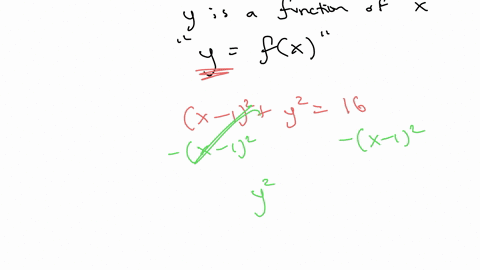 y is a function of x
"y = f(x)"
(x-1)² + y² = 16
-(x-1)² -(x-1)²
y²